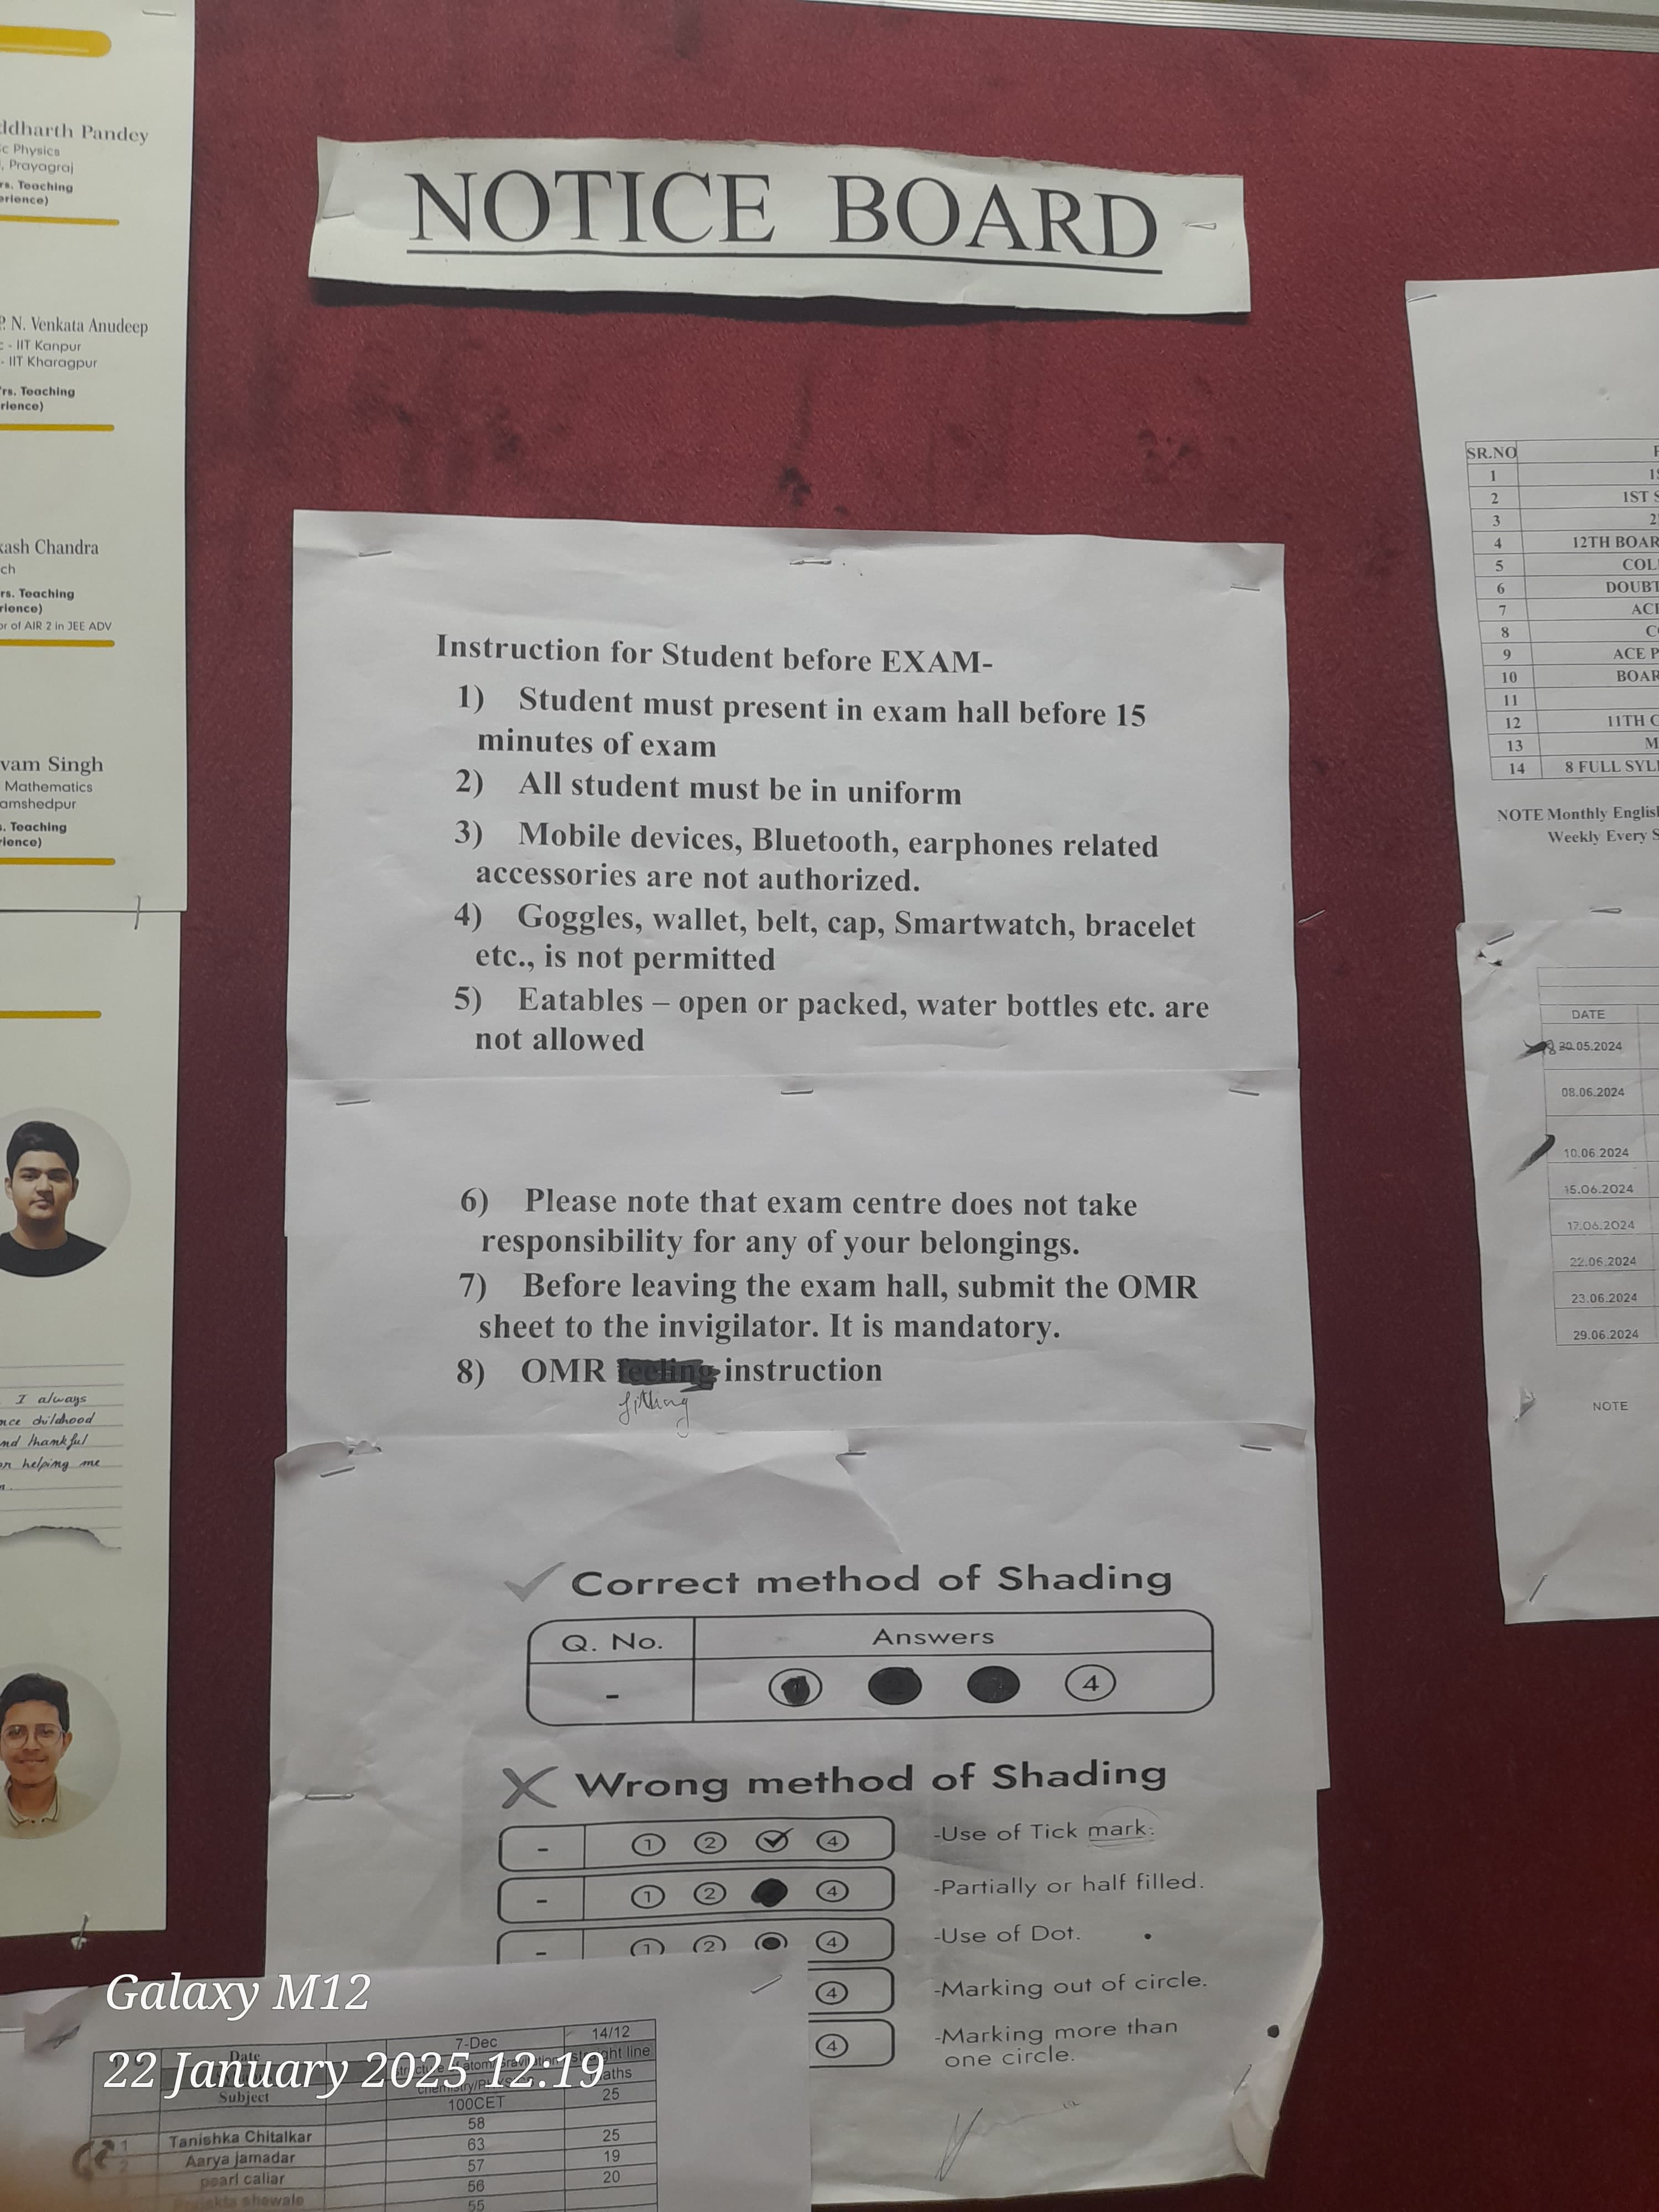 ddharth Pandey
c Physics
, Prayagraj
rs. Teaching
erience)
P. N. Venkata Anudeep
c - IIT Kanpur
- IIT Kharagpur
rs. Teaching
rience)
kash Chandra
ch
rs. Teaching
rience)
or of AIR 2 in JEE ADV
vam Singh
Mathematics
amshedpur
s. Teaching
ience)
I always
nce childhood
nd thankful
on helping me
NOTICE BOARD
Instruction for Student before EXAM-
1) Student must present in exam hall before 15
minutes of exam
2) All student must be in uniform
3) Mobile devices, Bluetooth, earphones related
accessories are not authorized.
4) Goggles, wallet, belt, cap, Smartwatch, bracelet
etc., is not permitted
5) Eatables – open or packed, water bottles etc. are
not allowed
6) Please note that exam centre does not take
responsibility for any of your belongings.
7) Before leaving the exam hall, submit the OMR
sheet to the invigilator. It is mandatory.
8) OMR feeling instruction
Correct method of Shading
Q. No. Answers
- 4
Wrong method of Shading
- 1 2 4 -Use of Tick mark.
- 1 2 4 -Partially or half filled.
- 1 2 4 -Use of Dot.
4 -Marking out of circle.
4 -Marking more than
one circle.
SR.NO
1
2 1ST S
3 2
4 12TH BOAR
5 COL
6 DOUBT
7 ACE
8 CO
9 ACE P
10 BOAR
11
12 11TH C
13 M
14 8 FULL SYL
NOTE Monthly English
Weekly Every S
DATE
20.05.2024
08.06.2024
10.06.2024
15.06.2024
17.06.2024
22.06.2024
23.06.2024
29.06.2024
NOTE
Galaxy M12
22 January 2025 12:19
Date 7-Dec 14/12
straight line
Subject
100CET 25
58
1 Tanishka Chitalkar 63 25
2 Aarya jamadar 57 19
pearl caliar 56 20
55